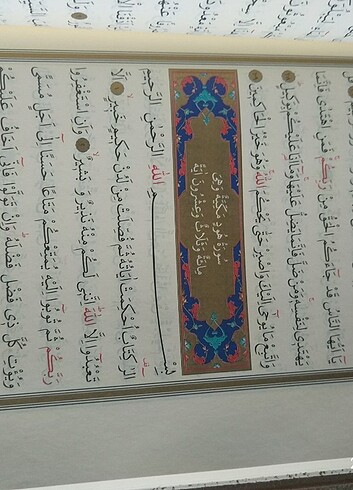 يَٓا اَيُّهَا النَّاسُ قَدْ جَٓاءَكُمُ الْحَقُّ مِنْ رَبِّكُمْۚ فَمَنِ اهْتَدٰى فَاِنَّمَا
يَهْتَد۪ي لِنَفْسِه۪ۚ وَمَنْ ضَلَّ فَاِنَّمَا يَضِلُّ عَلَيْهَاۚ وَمَٓا اَنَا۬ عَلَيْكُمْ بِوَك۪يلٍۜ
وَاتَّبِعْ مَا يُوحٰٓى اِلَيْكَ وَاصْبِرْ حَتّٰى يَحْكُمَ اللّٰهُۚ وَهُوَ خَيْرُ الْحَاكِم۪ينَ
سُورَةُ هُودٍ مَكِّيَّةٌ وَهِيَ
مِائَةٌ وَثَلَاثٌ وَعِشْرُونَ اٰيَةً
بِسْــــــمِ اللّٰهِ الرَّحْمٰنِ الرَّح۪يمِ
الٓرٰ۠ كِتَابٌ اُحْكِمَتْ اٰيَاتُهُ ثُمَّ فُصِّلَتْ مِنْ لَدُنْ حَك۪يمٍ خَب۪يرٍۙ ١ اَلَّا
تَعْبُدُٓوا اِلَّا اللّٰهَۜ اِنَّن۪ي لَكُمْ مِنْهُ نَذ۪يرٌ وَبَش۪يرٌۙ ٢ وَاَنِ اسْتَغْفِرُوا
رَبَّكُمْ ثُمَّ تُوبُٓوا اِلَيْهِ يُمَتِّعْكُمْ مَتَاعًا حَسَنًا اِلٰٓى اَجَلٍ مُسَمًّى
وَيُؤْتِ كُلَّ ذ۪ي فَضْلٍ فَضْلَهُۜ وَاِنْ تَوَلَّوْا فَاِنّ۪ٓي اَخَافُ عَلَيْكُمْ